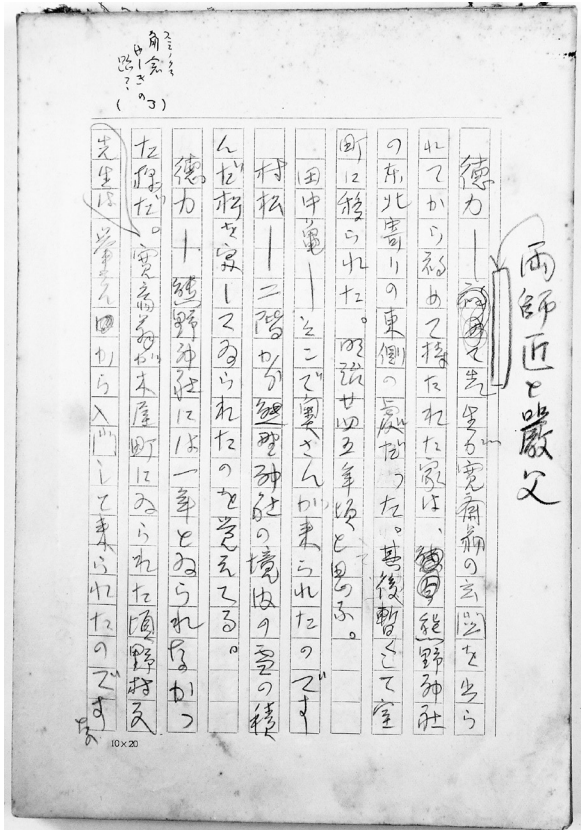 両師匠と嚴父
徳力ー て先生が寛斎翁の玄関を出ら
れてから初めて持たれた家は、 熊野神社
の东北寄りの東側の處だつた。其後暫くして室
町に移られた。明治廿四五年頃と思ふ。
田中亀ーそこで奥さんが来られたのですー
村松ー二階から熊野神社の境内の雪の積
んだ松を寫してゐられたのを覚えてる。
徳力ー熊野神社には一年とゐられなかつ
た様だ。寛斎翁が木屋町にゐられた頃野村文
先生は から入門して来られたのですな
10×20